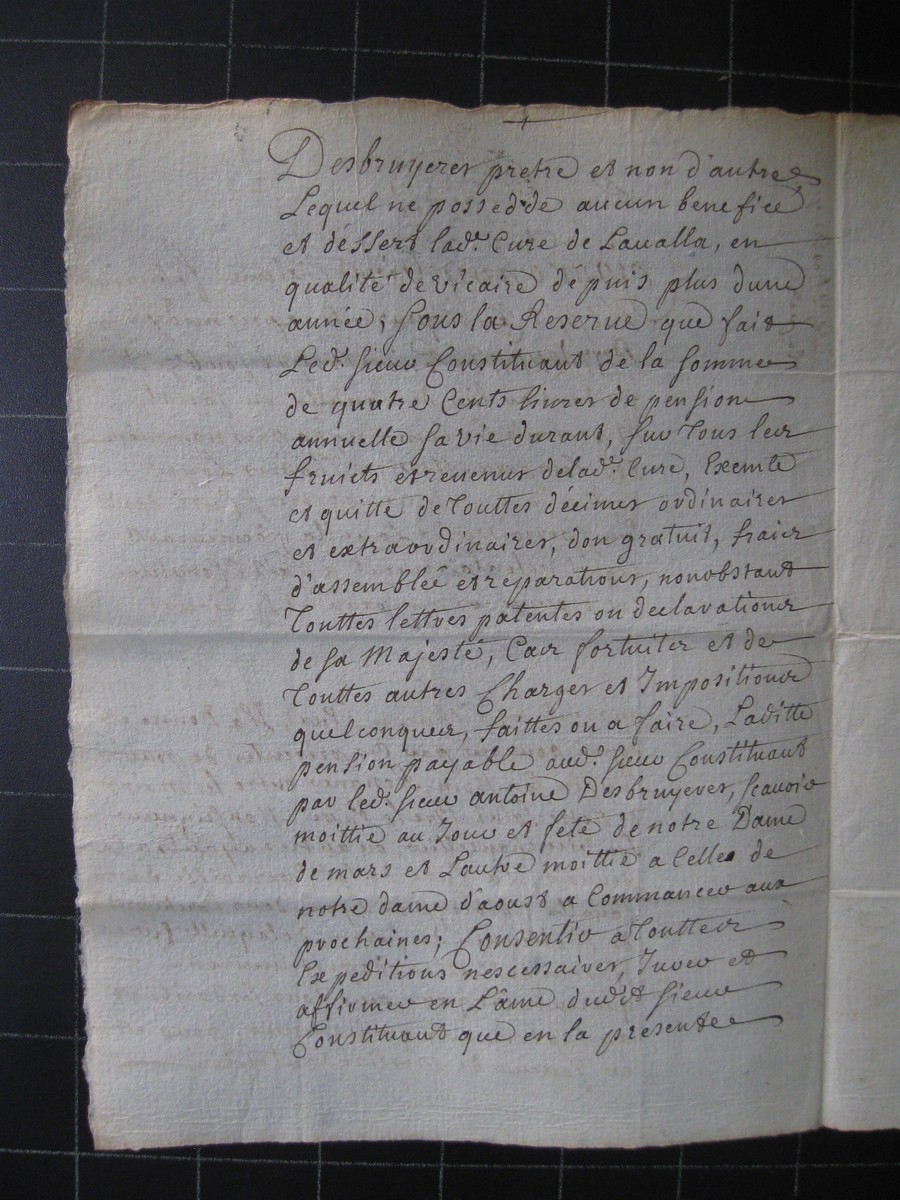 Desbruyeres pretre et non d'autre
Lequel ne possedde aucun benefice
et déssert lade. Cure de Laualla, en
qualité de vicaire dépuis plus dune
année, sous la Reserue que fait
Led. sieur Constituant de la somme
de quatre Cents liures de pension
annuelle sa vie durant, sur Tous les
fruicts et reuenus de lade. Cure, Exemte
et quitte de Touttes décimes ordinaires
et extraordinaires, don gratuit, frais
d'assemblée et réparations, nonobstant
Touttes lettres patentes ou declarations
de sa Majesté, Cas fortuits et de
Touttes autres Charges et Impositions
quelconques, faittes ou a faire, Laditte
pension payable aud. sieur Constituant
par led. sieur antoine Desbruyeres, scauoir
moittié au Jour et fete de notre Dame
de mars et Lautre moittié a Celle de
notre dame d'aoust a Commancer aux
prochaines; Consentir a Touttes
Expeditions nescessaires, Jurer et
affirmer en L'âme dudit sieur
Constituant que en la presente